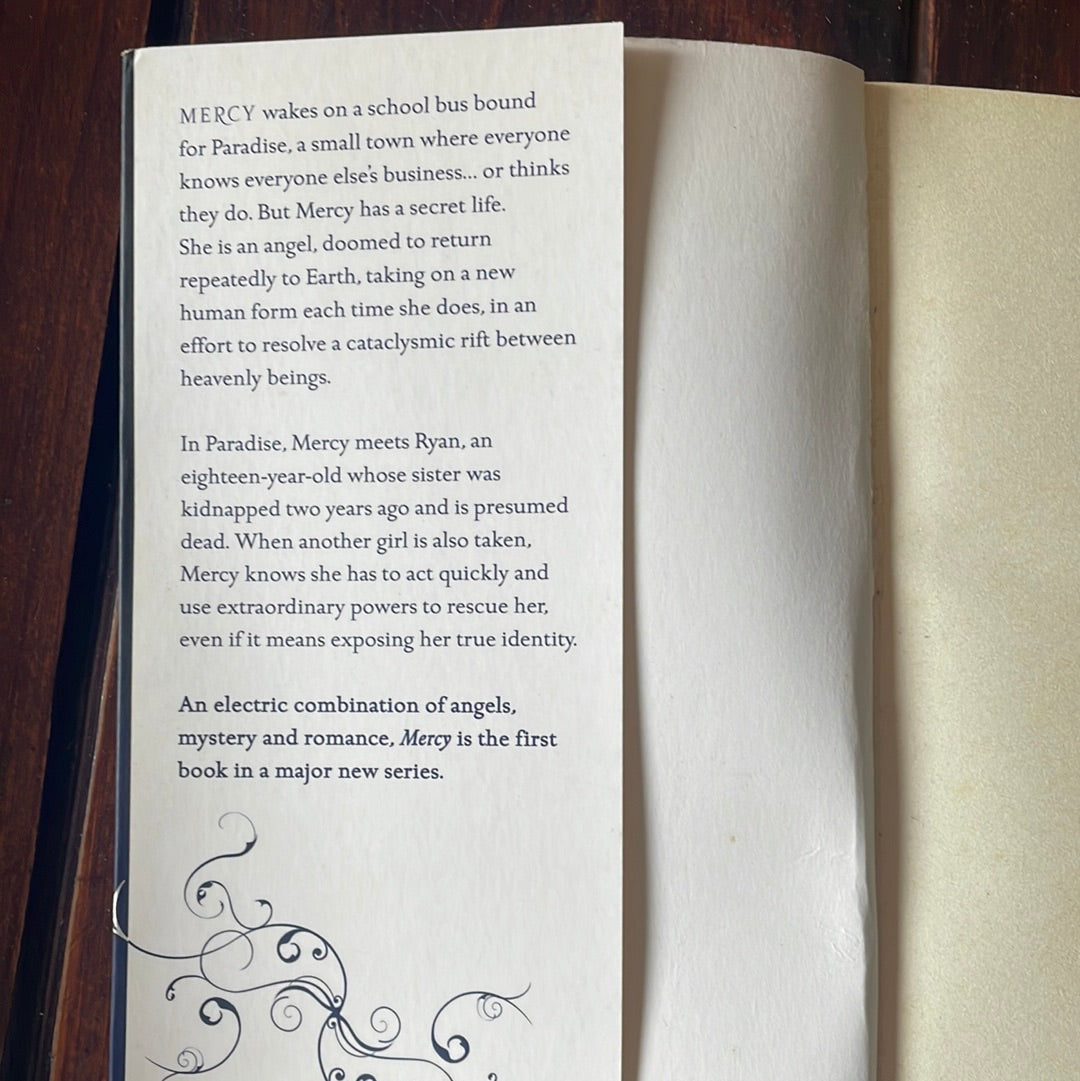 MERCY wakes on a school bus bound
for Paradise, a small town where everyone
knows everyone else's business... or thinks
they do. But Mercy has a secret life.
She is an angel, doomed to return
repeatedly to Earth, taking on a new
human form each time she does, in an
effort to resolve a cataclysmic rift between
heavenly beings.
In Paradise, Mercy meets Ryan, an
eighteen-year-old whose sister was
kidnapped two years ago and is presumed
dead. When another girl is also taken,
Mercy knows she has to act quickly and
use extraordinary powers to rescue her,
even if it means exposing her true identity.
An electric combination of angels,
mystery and romance, Mercy is the first
book in a major new series.